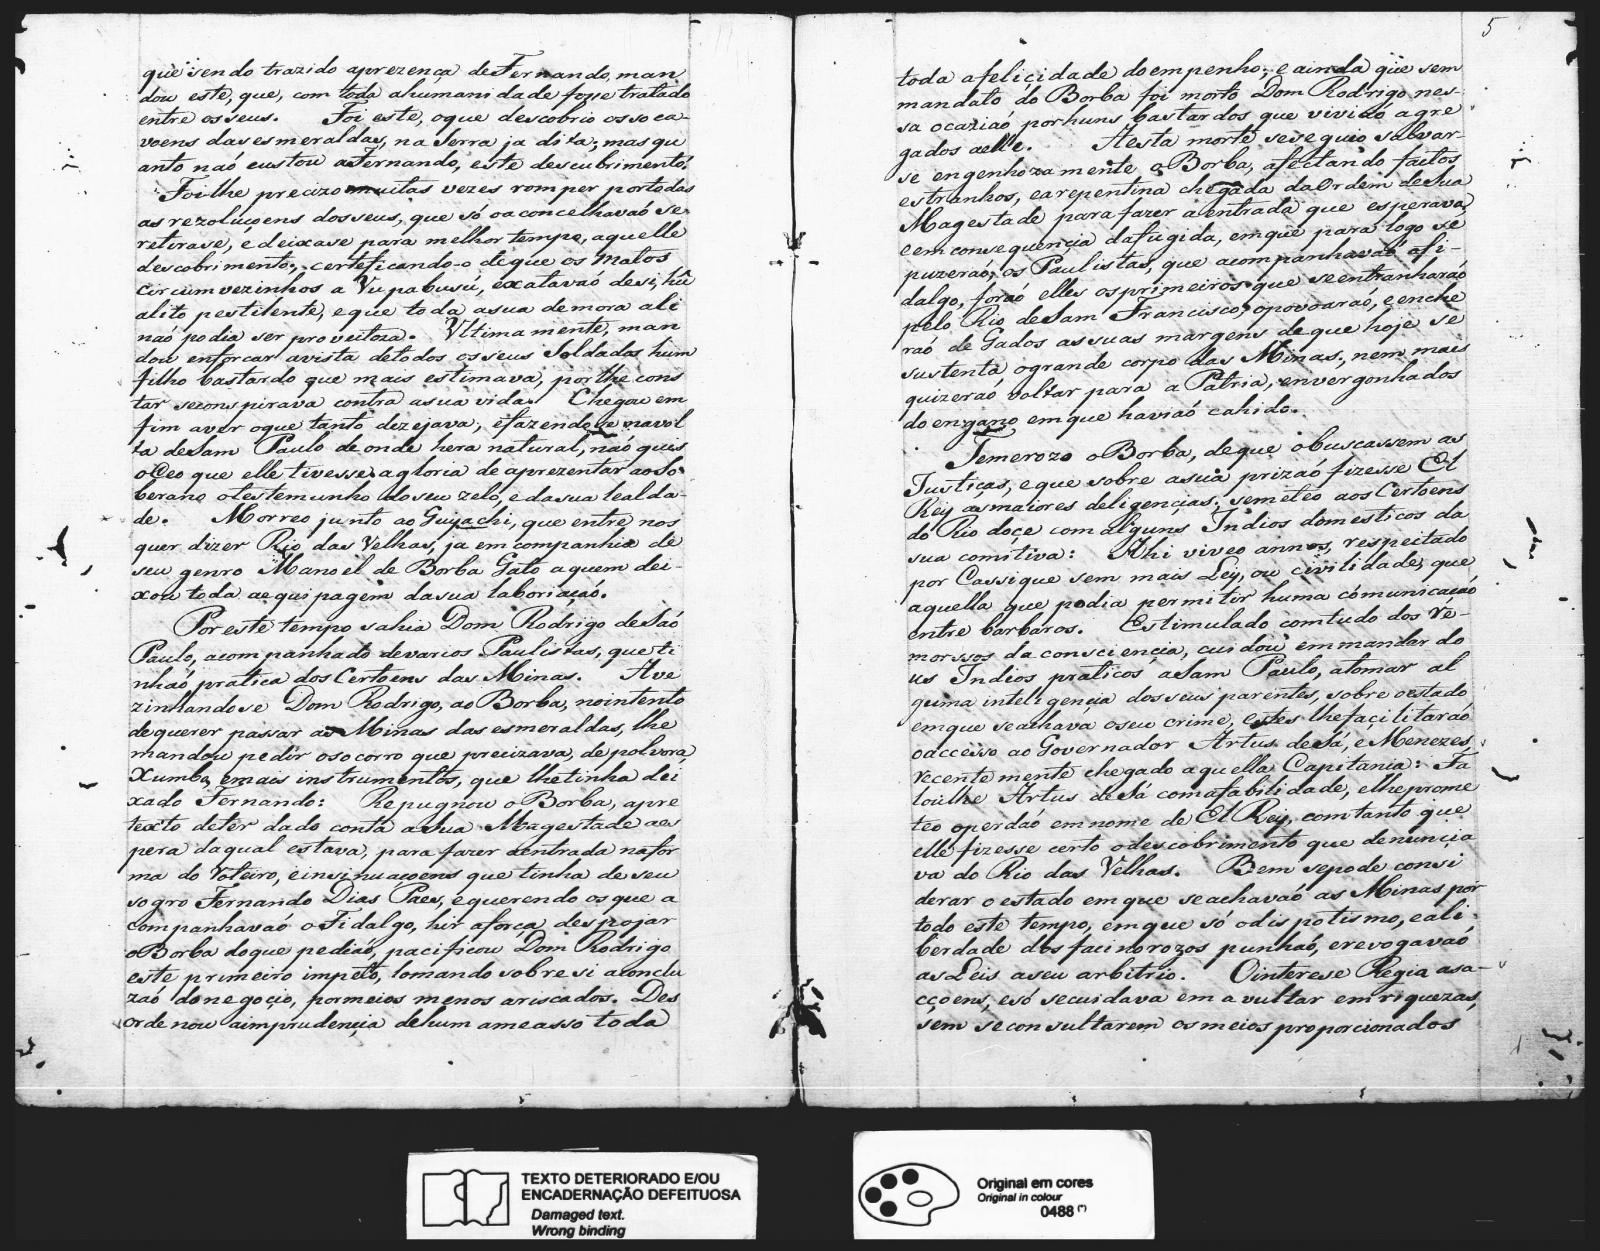 que sendo trazido aprezença deFernando, man
dou este, que, com toda ahumanidade foçe tratado
entre osseus. Foi este, oque descobrio ossoca-
voens dasesmeraldas, na Serra ja dita; mas qu
anto naó custou aFernando, este descubrimento,
Foilhe precizo muitas vezes romper portodas
as rezoluçoens dosseus, que só oaconcelhavaó se
retirase, e deixase para melhor tempo, aquelle
descobrimento, certeficando-o deque os matos
circumvezinhos a Vupabusú, exalavaó desi, hũ
alito pestilente, eque toda asua demora ali
naó podia ser proveitoza. Vltimamente, man
dou enforcar avista detodos osseus Soldados hum
filho bastardo que mais estimava, porlhe cons
tar seconspirava contra asua vida. Chegou em
fim aver oque tanto dezejava, efazendose navol
ta deSam Paulo deonde hera natural, naó quis
oCeo que elle tivesse agloria de aprezentar aoSo
berano otestemunho doseu zelo, e dasua lealda-
de. Morreo junto ao Guyachi, que entre nos
quer dizer Rio das Velhas, ja em companhia de
seu genro Manoel de Borba Gato aquem dei-
xou toda aequipagem dasua laboriaçaó.
Poreste tempo sahia Dom Rodrigo deSaó
Paulo, acompanhado devarios Paulistas, queti
nhaó pratica dos Certoens das Minas. Ave
zinhandose Dom Rodrigo, ao Borba, nointento
dequerer passar as Minas das esmeraldas, lhe
mandou pedir osocorro que precizava, de polvora
Xumbo, emais instrumentos, que lhetinha dei
xado Fernando: Repugnou o Borba, apre
texto deter dado conta aSua Magestade aes
pera daqual estava, para fazer aentrada nafor
ma do Roteiro, einsinuaçoens que tinha deseu
sogro Fernando Dias Paes, equerendo osque a
companhavaó oFidalgo, hir aforça despojar
oBorba doque pediaó, pacificou Dom Rodrigo
este primeiro impeto, tomando sobresi aconclu
zaó donegoçio, pormeios menos ariscados. Des
ordenou aimprudençia dehum ameasso toda
5
toda afeliçidade doempenho; e ainda que sem
mandato do Borba foi morto Dom Rodrigo nes-
sa ocaziaó porhuns bastardos que viviaó agre
gados aelle. Aesta morte seseguio salvar-
se engenhozamente o Borba, afectando factos
estranhos, earepentina chegada daOrdem deSua
Magestade parafazer aentrada que esperava,
eemconsequençia dafugida, emque para logo se
puzeraó, os Paulistas, que acompanhavaó ofi-
dalgo, foraó elles osprimeiros que seentranharaó
pelo Rio deSam Francisco, opovoaraó, eenche
raó de Gados assuas margens deque hoje se
sustenta ogrande corpo das Minas, nem mais
quizeraó voltar para a Patria, envergonhados
do engano emque haviaó cahido.
Temerozo oBorba, deque obuscassem as
Justiças, eque sobre asua prizaó fizesse El
Rey asmaiores deligencias, semeteo aos Certoens
do Rio doçe comalguns Indios domesticos da
sua comitiva: Ahi viveo annos, respeitado
por Cassique sem mais Ley, ou civilidade, que
aquella que podia permitir huma cómunicaçaó
entre barbaros. Estimulado comtudo dos re-
morssos da consciençia, cuidou emmandar do
us Indios praticos aSam Paulo, atomar al
guma inteligençia dosseus parentes, sobre oestado
emque seachava oseu crime, estes lhefacilitaraó
oaccesso ao Governador Artus deSá, e Menezes,
recentemente chegado aquella Capitania: Fa
loulhe Artus deSá comafabilidade, elheprome
teo operdaó emnome de El Rey, comtanto que
elle fizesse certo odescobrimento que denuncia
va do Rio das Velhas. Bem sepode consi
derar oestado emque seachavaó as Minas por
todo este tempo, emque só odispotismo, eali-
berdade dos facinorozos punhaó, erevogavaó
asLeis aseu arbitrio. Ointerese Regia asa-
cçoens, esó secuidava em avultar emriquezas,
sem seconsultarem osmeios proporcionados
TEXTO DETERIORADO E/OU
ENCADERNAÇÃO DEFEITUOSA
Damaged text.
Wrong binding
Original em cores
Original in colour
0488 (*)